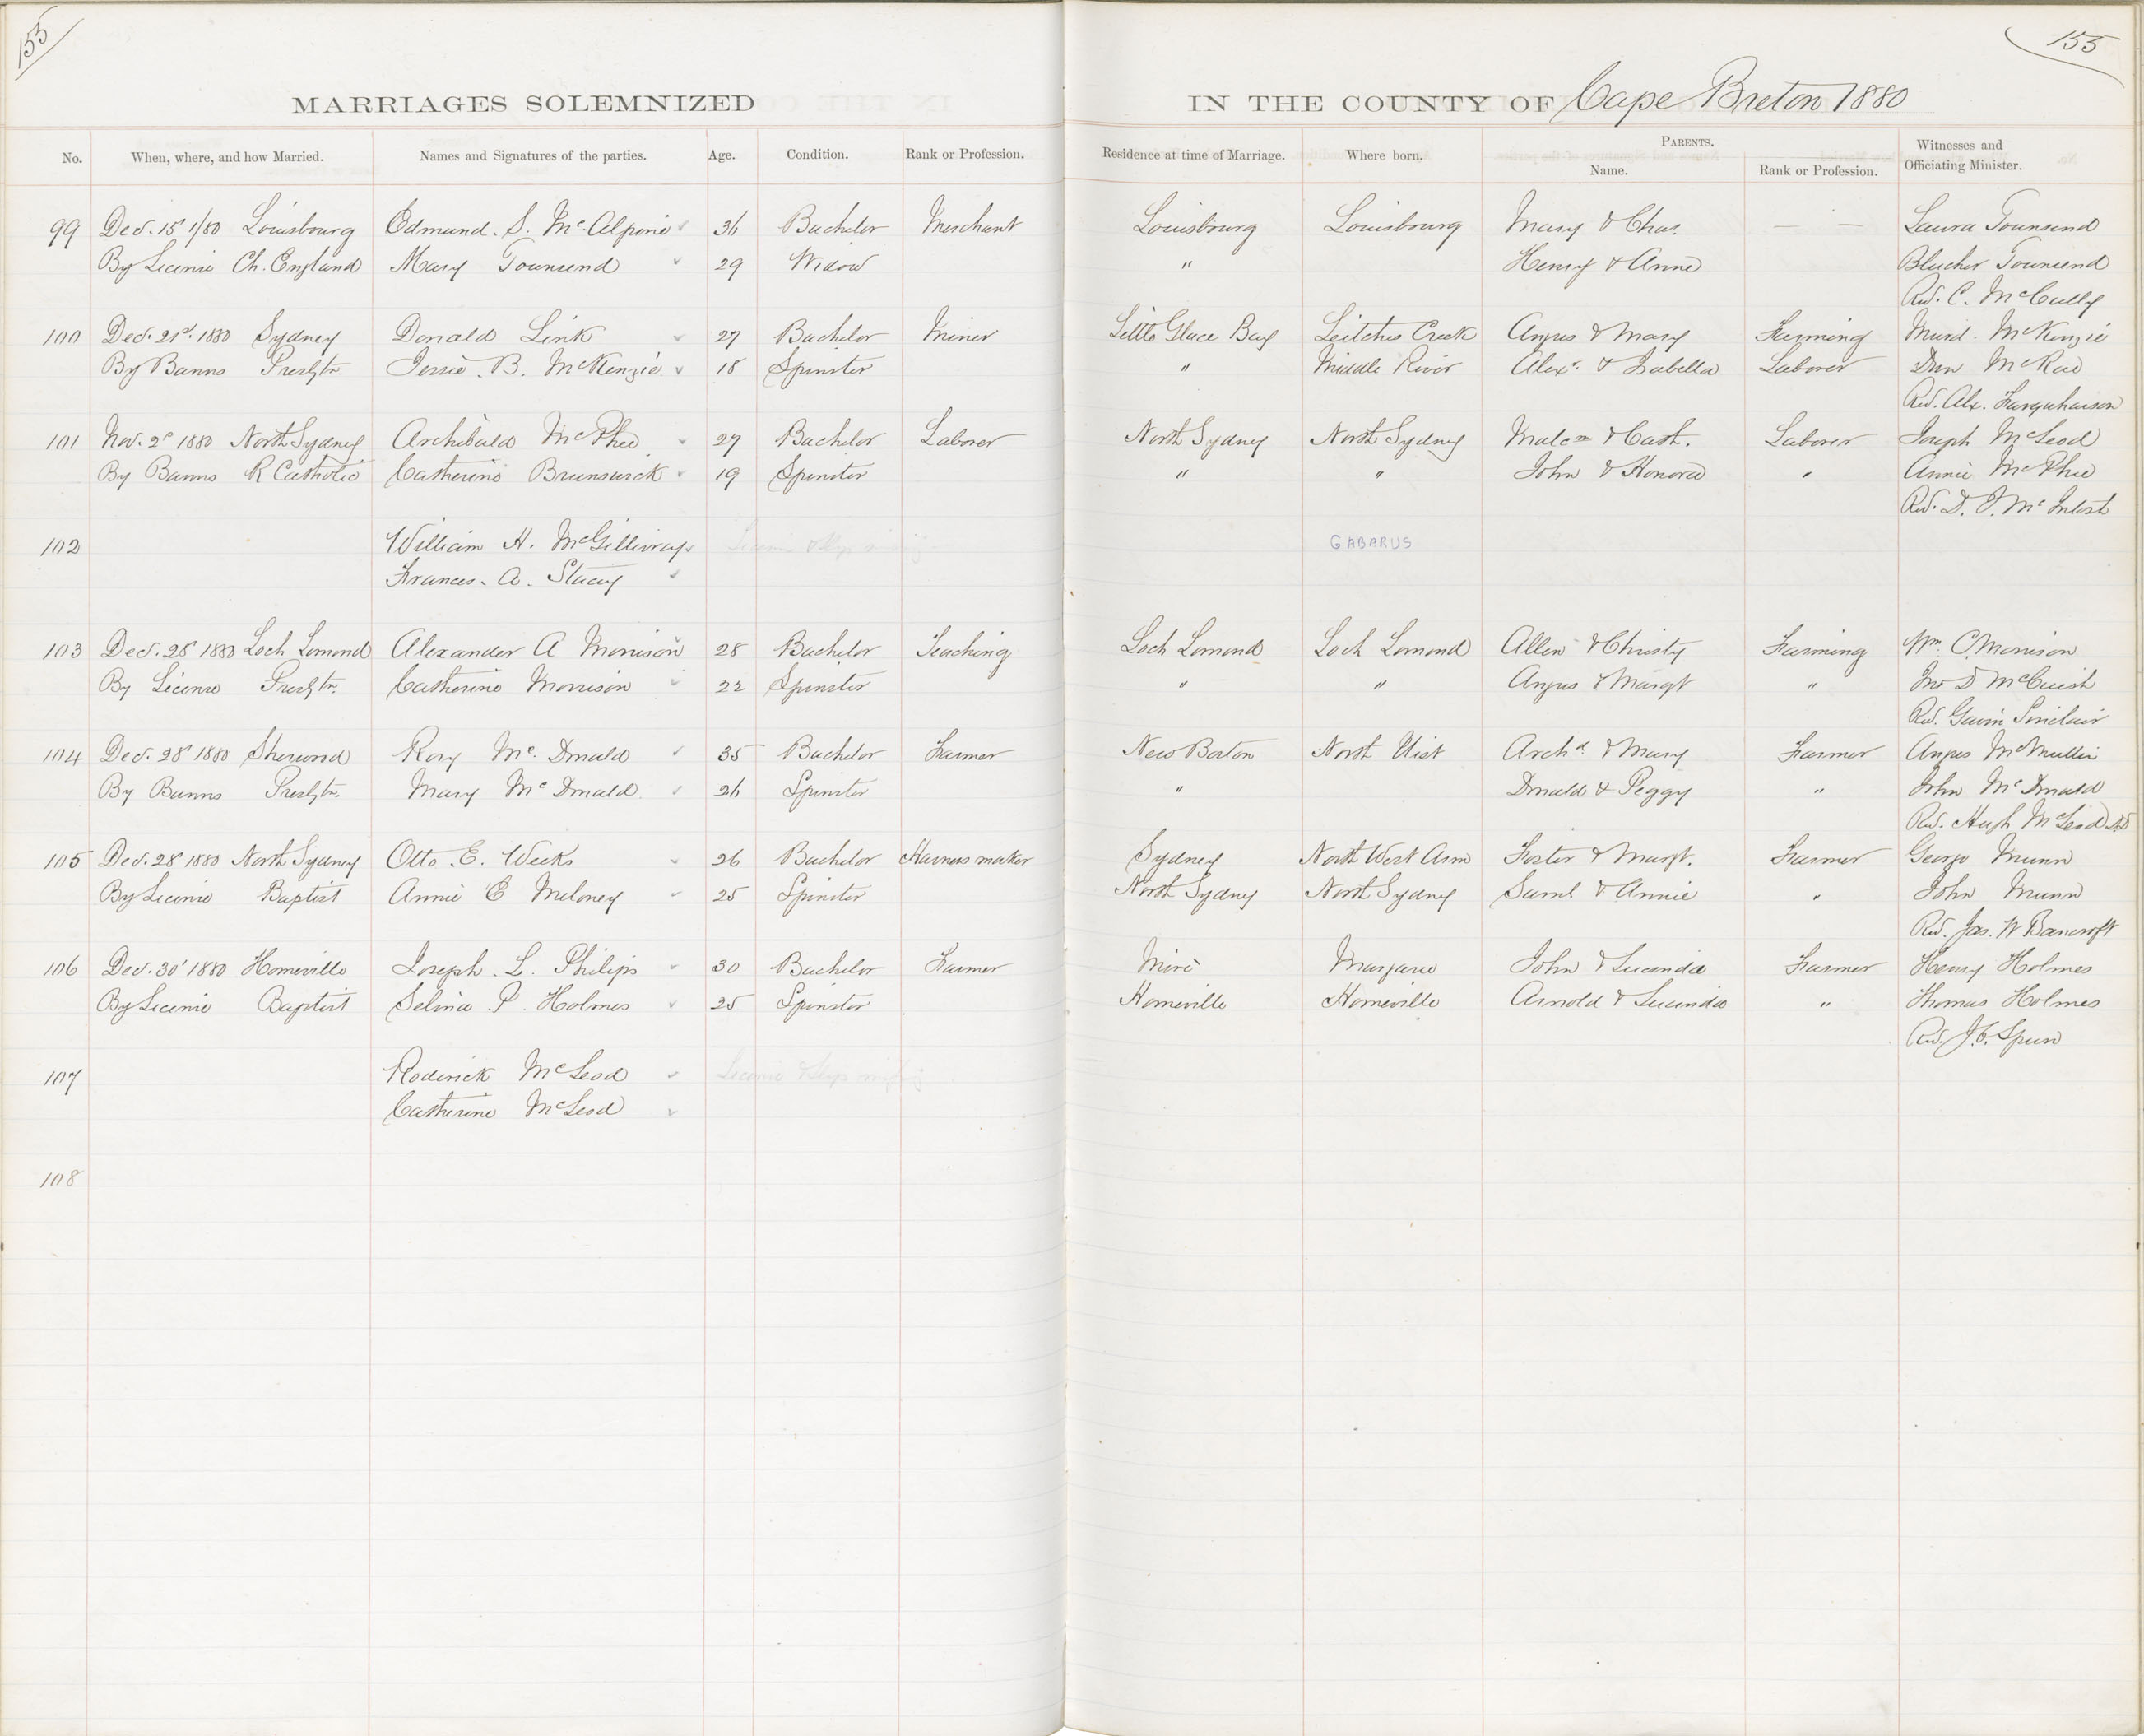 155
155
MARRIAGES SOLEMNIZED IN THE COUNTY OF Cape Breton 1880
No. When, where, and how Married. Names and Signatures of the parties. Age. Condition. Rank or Profession. Residence at time of Marriage. Where born. PARENTS. Name. Rank or Profession. Witnesses and Officiating Minister.
99 Dec. 15 1/80 Louisbourg Edmund. S. McAlpine 36 Bachelor Merchant Louisbourg Louisbourg Mary & Chas. — — Laura Townsend
By License Ch. England Mary Townsend 29 Widow " Henry & Anne Blucher Townsend
Rev. C. McCully
100 Dec. 21st. 1880 Sydney Donald Link 27 Bachelor Miner Little Glace Bay Leitches Creek Angus & Mary Farming Murd. McKenzie
By Banns Presbtn. Jessie. B. McKenzie 18 Spinster " Middle River Alexr. & Isabella Laborer Dun McRae
Rev. Alx. Farquharson
101 Nov. 2d 1880 North Sydney Archibald McPhee 27 Bachelor Laborer North Sydney North Sydney Malcm & Cath. Laborer Joseph McLeod
By Banns R Catholic Catherine Brunswick 19 Spinster " " John & Honora " Annie McPhee
Rev. D. J. McIntosh
102 William H. McGillivray GABARUS
Frances. A. Stacey
103 Dec. 28 1880 Loch Lomond Alexander A Morrison 28 Bachelor Teaching Loch Lomond Loch Lomond Allen & Christy Farming Wm. C. Morrison
By License Presbtn. Catherine Morrison 22 Spinster " " Angus & Margt " Jno D McCuish
Rev. Gavin Sinclair
104 Dec. 28 1880 Sherwood Rory Mc. Donald 35 Bachelor Farmer New Boston North Uist Archd & Mary Farmer Angus McMullin
By Banns Presbtn. Mary McDonald 26 Spinster " Donald & Peggy " John McDonald
Rev. Hugh McLeod DD
105 Dec. 28 1880 North Sydney Otto. E. Weeks 26 Bachelor Harness maker Sydney North West Arm Foster & Margt. Farmer George Munn
By License Baptist Annie E Meloney 25 Spinster North Sydney North Sydney Saml & Annie " John Munn
Rev. Jas. W Bancroft
106 Dec. 30 1880 Homeville Joseph. L. Philips 30 Bachelor Farmer Miré Margaree John & Lucinda Farmer Henry Holmes
By License Baptist Selina. P. Holmes 25 Spinster Homeville Homeville Arnold & Lucinda " Thomas Holmes
Rev. J. C. Spurr
107 Roderick McLeod License & slip missing
Catherine McLeod
108